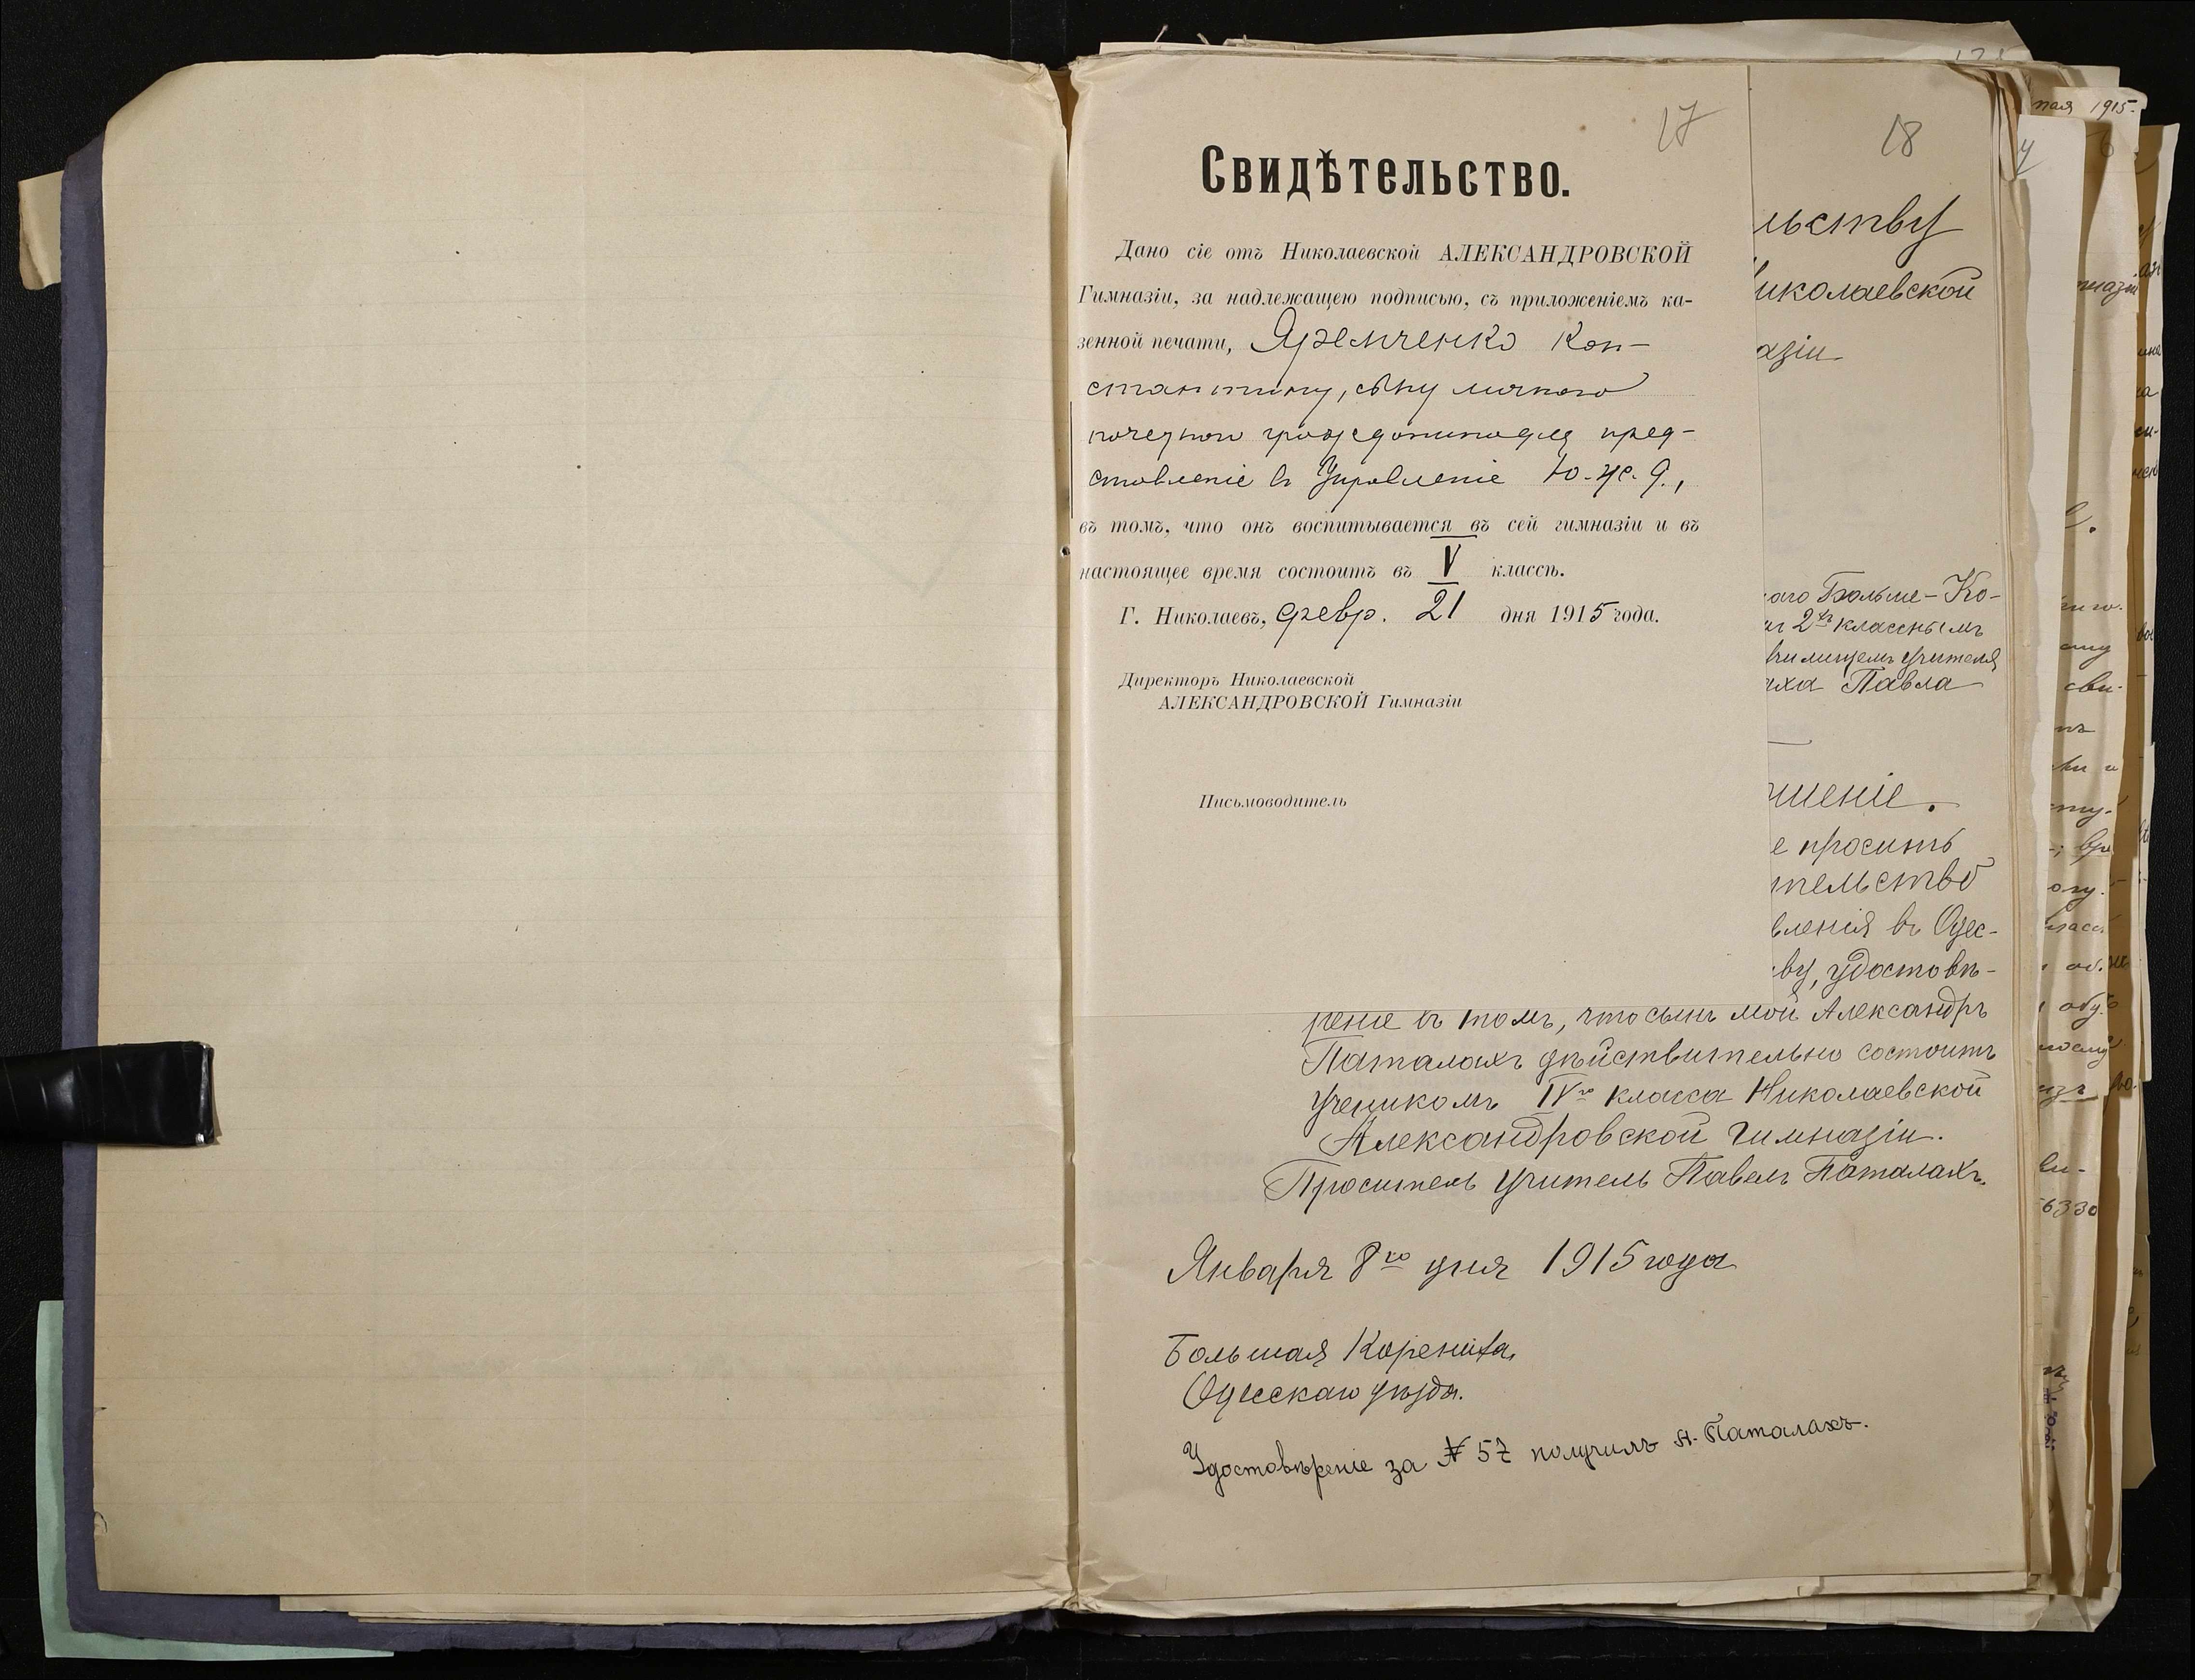 17
Свидѣтельство.
Дано сіе отъ Николаевской АЛЕКСАНДРОВСКОЙ
Гимназіи, за надлежащею подписью, съ приложеніемъ ка-
зенной печати, Яремченко Кон-
стантину, сыну личнаго
почетнаго гражданина для пред-
ставленія въ Управленіе Ю.-Ж. Д.,
въ томъ, что онъ воспитывается въ сей гимназіи и въ
настоящее время состоитъ въ V классѣ.
Г. Николаевъ, февр. 21 дня 1915 года.
Директоръ Николаевской
АЛЕКСАНДРОВСКОЙ Гимназіи
Письмоводитель
18
льству
иколаевской
азіи
аго Больше-Ко-
2хъ класснымъ
илищемъ учителя
аха Павла
шеніе.
е просить
тельство
вленія въ Одес-
ву, удостовѣ-
реніе въ томъ, что сынъ мой Александръ
Паталахъ дѣйствительно состоитъ
ученикомъ IVго класса Николаевской
Александровской гимназіи.
Проситель учитель Павелъ Паталахъ.
Января 8го дня 1915 года
Большая Корениха,
Одесскаго уѣзда.
Удостовѣреніе за № 57 получилъ А. Паталахъ.
мая 1915.
6330